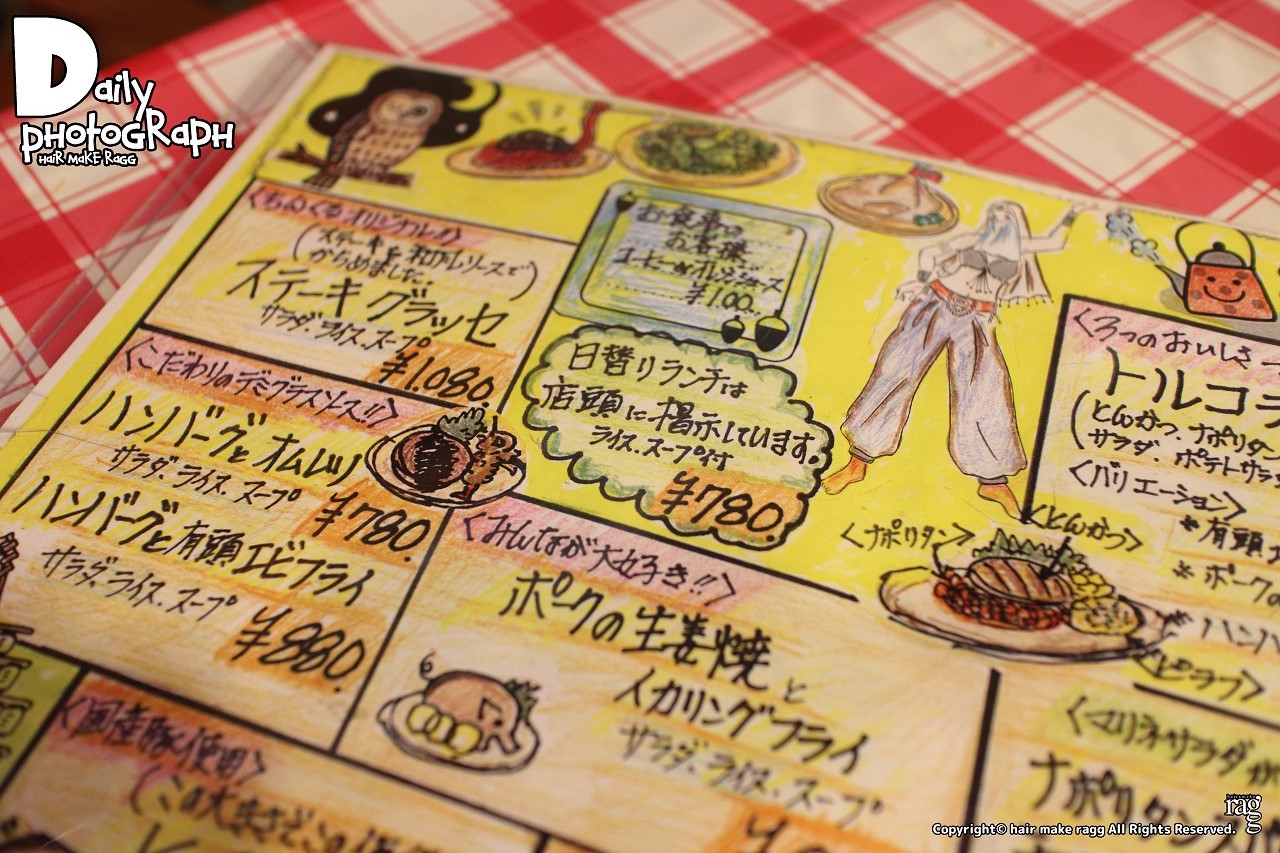 Daily
PHOTOGRAPH
HAIR MAKE RAGG
ステーキを和風ソースで
からめました。
ステーキグラッセ
サラダ、ライス、スープ
¥1,080.
お食事の
お客様
コーヒーorオレンジジュース
¥100.
日替りランチは
店頭に掲示しています。
ライス、スープ付
¥780.
<こだわりのデミグラスソース!!>
ハンバーグとオムレツ
サラダ、ライス、スープ
¥780.
ハンバーグと有頭エビフライ
サラダ、ライス、スープ
¥880.
<みんなが大好き!!>
ポークの生姜焼と
イカリングフライ
サラダ、ライス、スープ
<3つのおいしさ
トルコラ
(とんかつ、ナポリタン
サラダ、ポテトサラ
<バリエーション>
*有頭
*ポークの
ハンバ
<ナポリタン>
<とんかつ>
<ピラフ>
<国産豚使用>
(この大きさでこの
<マリネサラダ
ナポリタンス
hairmake
rag
Copyright© hair make ragg All Rights Reserved.